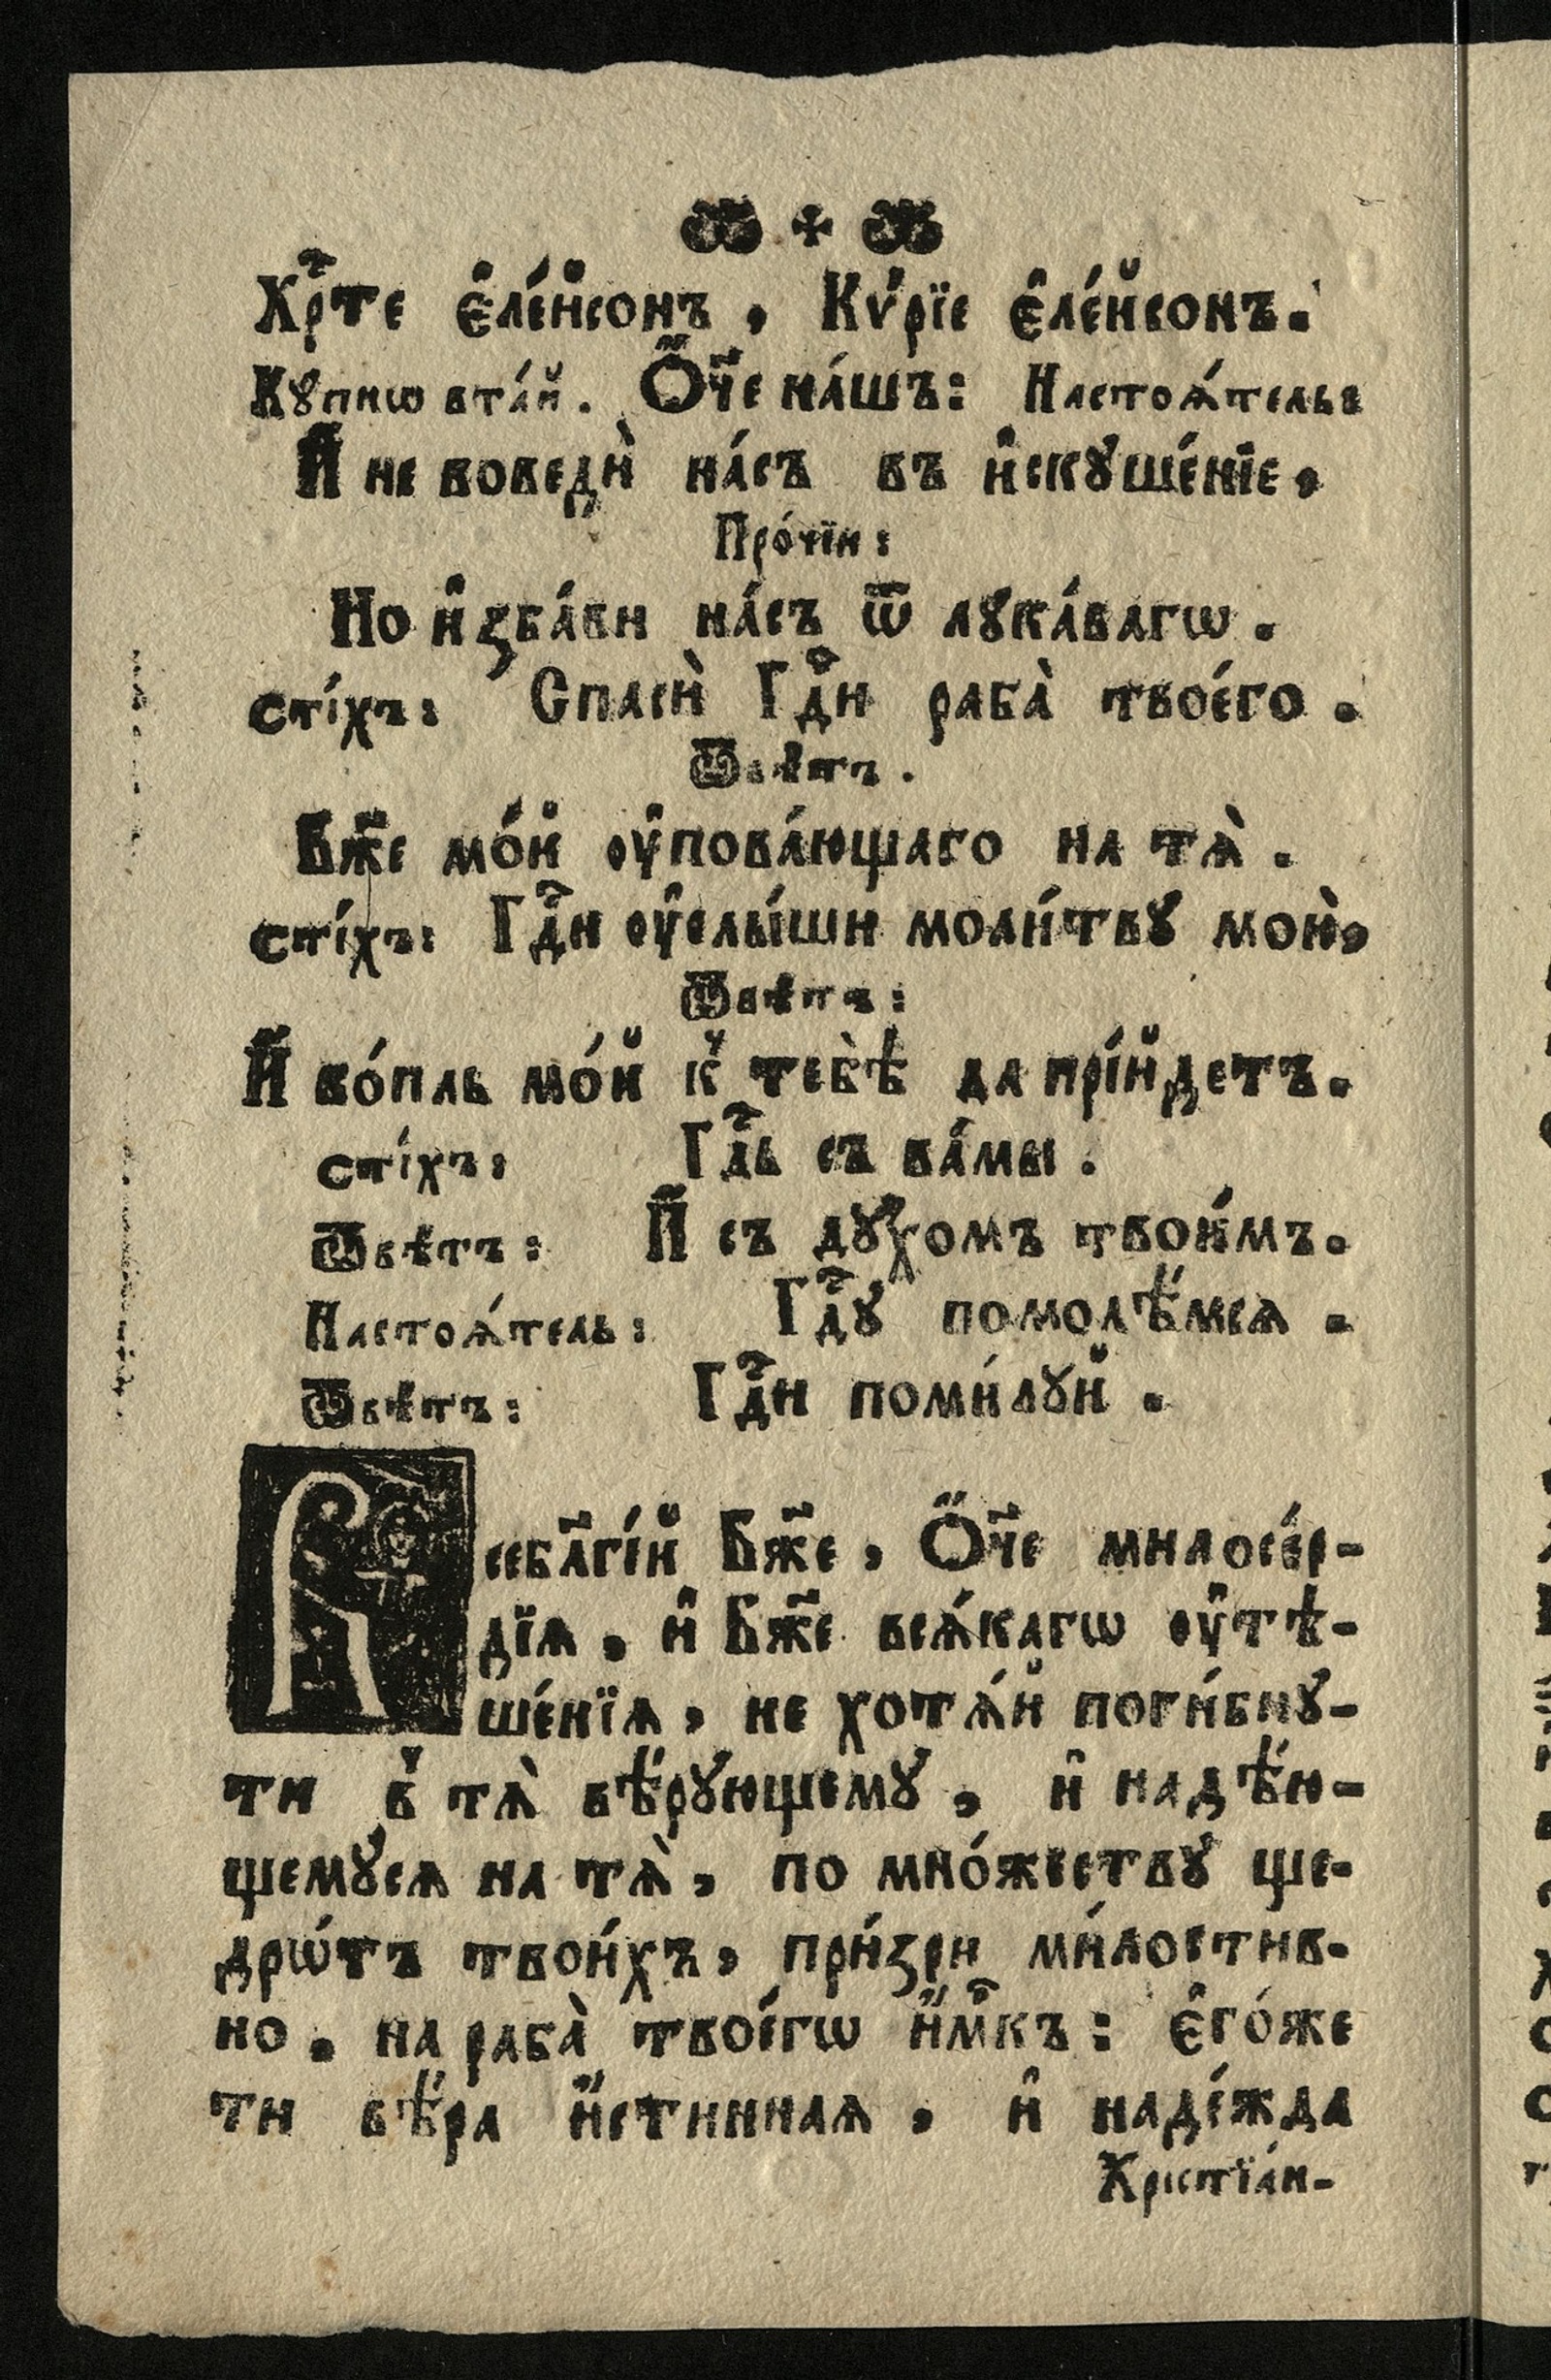 Хрⷭ҇те є҆ле́йсонъ, Кѵ́рїе є҆ле́йсонъ.
Кꙋпнѡ втай. Ѻ҆́ч҃е на́шъ: Настоѧ́тель:
И҆ не воведѝ на́съ въ и҆скꙋше́нїе,
Про́чїи:
Но и҆зба́ви на́съ ѿ лꙋка́вагѡ.
стїхъ: Спасѝ Гдⷭ҇и раба̀ твоего.
Ѿвѣтъ.
Бж҃е мо́й оу҆пова́ющаго на тѧ̀.
стїхъ: Гдⷭ҇и оу҆слы́ши моли́твꙋ мою̀,
Ѿвѣтъ:
И҆ во́пль мо́й к̾ тебѣ̀ да прїи́детъ.
стїхъ: Гдⷭ҇ь съ ва́мы.
Ѿвѣтъ: И҆ съ дꙋ́хомъ твои́мъ.
Настоѧ́тель: Гдⷭ҇ꙋ помолѣ́мсѧ.
Ѿвѣтъ: Гдⷭ҇и поми́лꙋй.
Всебл҃гі́й Бж҃е, Ѻ҆́ч҃е милосе́р-
дїѧ, и҆ Бж҃е всѧ́кагѡ оу҆тѣ-
ше́нїѧ, не хотѧ́й поги́бнꙋ-
ти в̾ тѧ̀ вѣ́рꙋющемꙋ, и҆ надѣ́ю-
щемꙋсѧ на тѧ̀, по мно́жествꙋ ще-
дрѡ́тъ твои́хъ, при́зри ми́лостив-
но. на раба̀ твоегѡ и҆́мⷬ҇къ: є҆го́же
ти вѣ́ра и҆́стиннаѧ, и҆ наде́жда
Христїа́н-